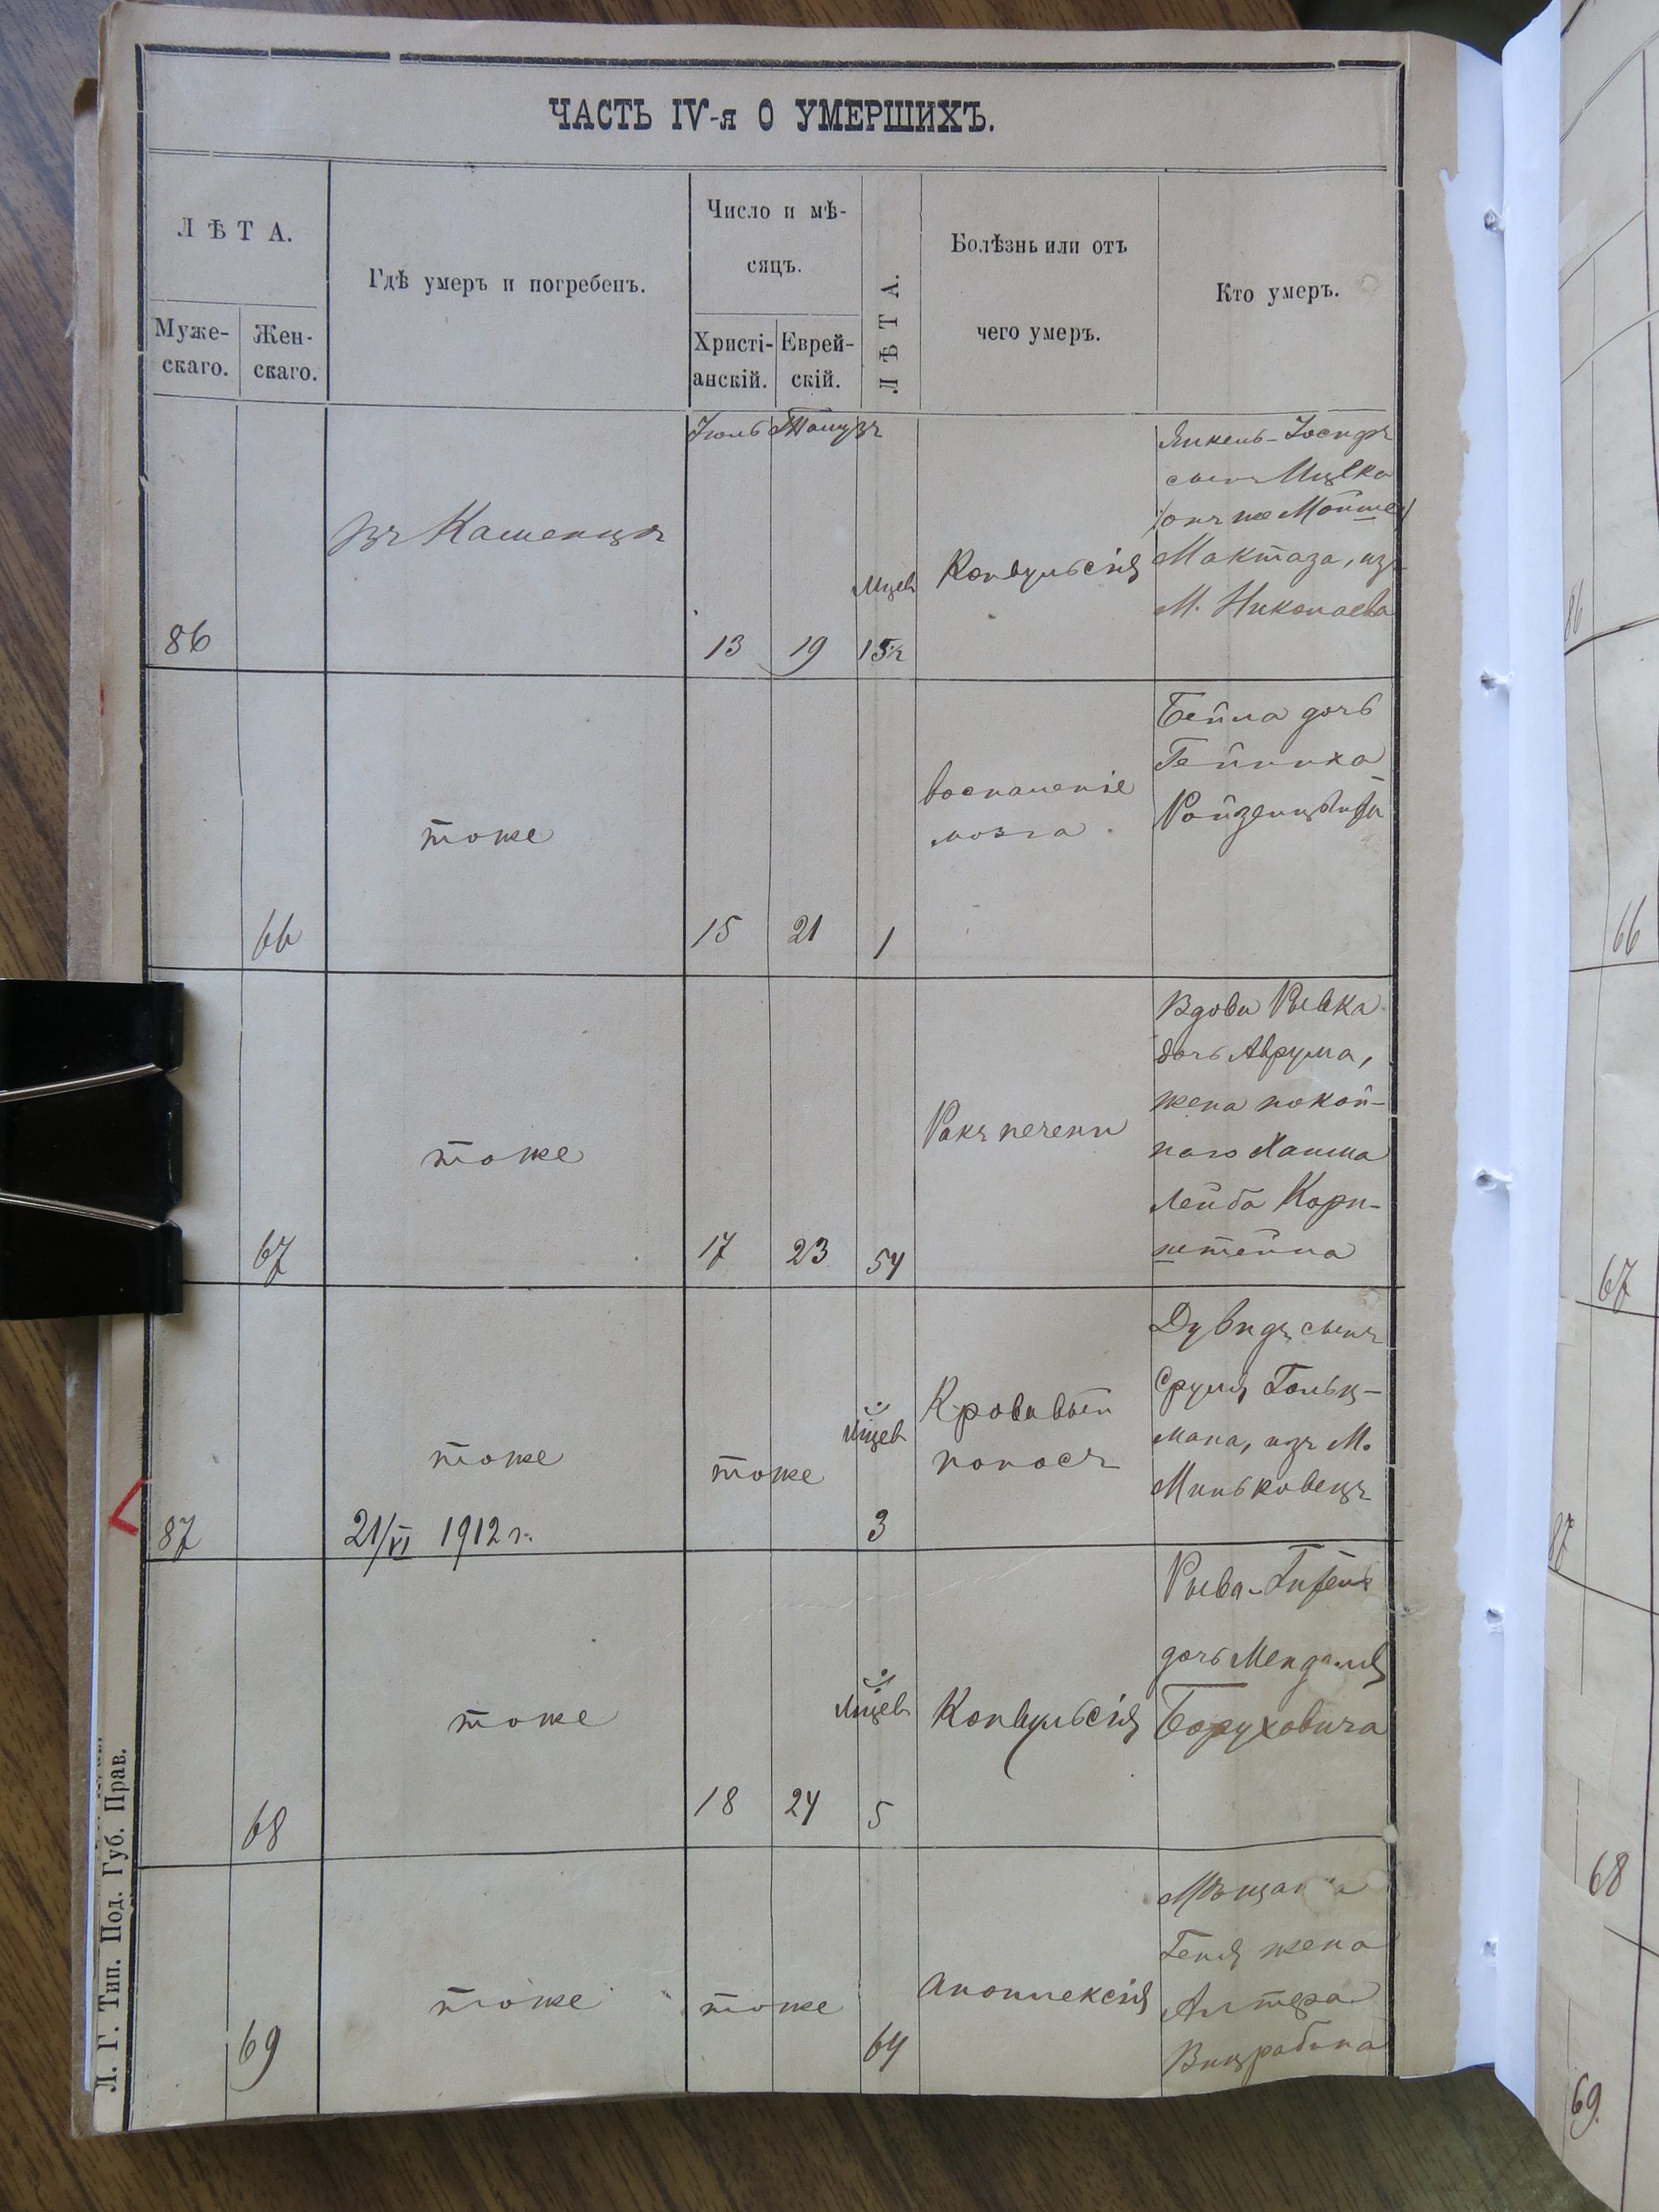 ЧАСТЬ IV-я О УМЕРШИХЪ.
ЛѢТА.
Муже-
скаго.
Жен-
скаго.
Гдѣ умеръ и погребенъ.
Число и мѣ-
сяцъ.
Христі-
анскій.
Еврей-
скій.
ЛѢТА.
Болѣзнь или отъ
чего умеръ.
Кто умеръ.
Іюль Тамузъ
86
въ Каменцѣ
13
19
Мцев
1 5½
Конвульсія
Янкель-Іосифъ
сынъ Мицka
онъ же Мойше
Мактаза, изъ
М. Николаева
66
тоже
15
21
1
воспаленіе
мозга
Бейла дочь
Гейниха
67
тоже
17
23
54
Ракъ печени
Вдова Рывка
дочь Аврума,
жена покой-
наго Хаима
Лейба Корн-
штейна
87
тоже
21/VI 1912 г.
тоже
Мцев
3
Кровавый
поносъ
Дувидъ сынъ
Сруля Гольц-
мана, изъ М.
Миньковецъ
68
тоже
18
24
Мцев
5
Конвульсія
Рыва-Гитель
дочь Менделя
Боруховича
69
тоже
тоже
64
Апоплексія
Мѣщанка
Геня жена
Алтера
Вицрабина
Л. Г. Тип. Под. Губ. Прав.
86
66
67
87
68
69.